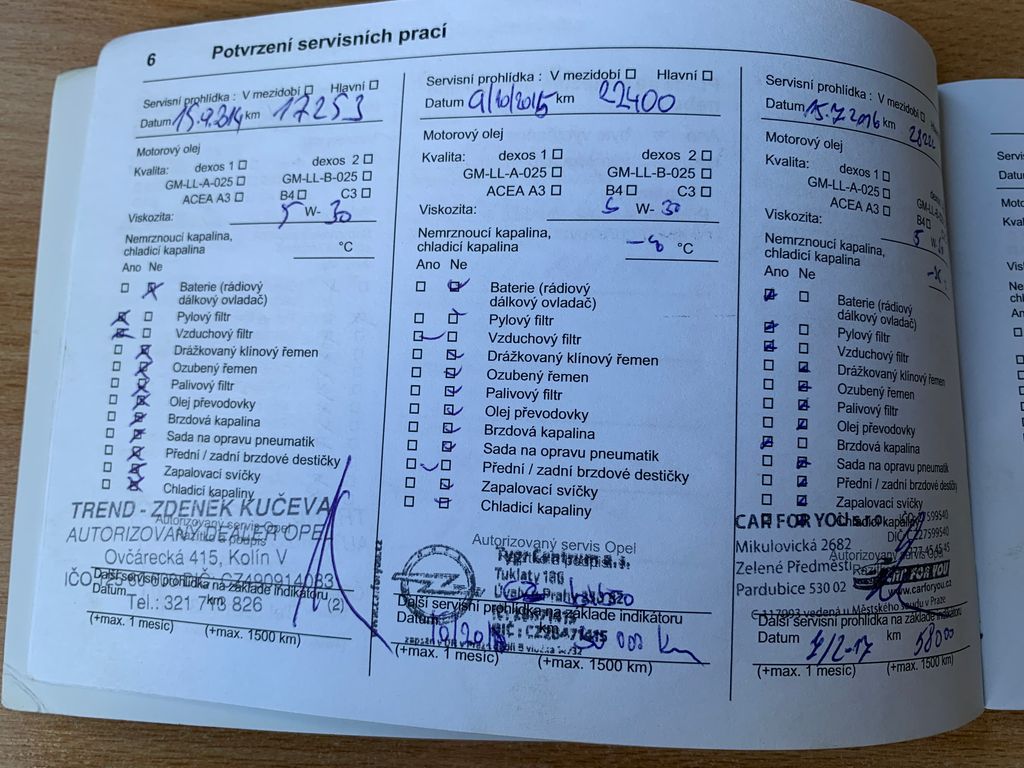 6 Potvrzení servisních prací
Servisní prohlídka : V mezidobí ☐ Hlavní ☐
Datum 15.9.2014 km 17253
Motorový olej
Kvalita: dexos 1 ☐ dexos 2 ☐
GM-LL-A-025 ☐ GM-LL-B-025 ☐
ACEA A3 ☐ B4 ☐ C3 ☐
Viskozita: 5 W- 30
Nemrznoucí kapalina,
chladicí kapalina °C
Ano Ne
Baterie (rádiový
dálkový ovladač)
Pylový filtr
Vzduchový filtr
Drážkovaný klínový řemen
Ozubený řemen
Palivový filtr
Olej převodovky
Brzdová kapalina
Sada na opravu pneumatik
Přední / zadní brzdové destičky
Zapalovací svíčky
Chladicí kapaliny
TREND - ZDENĚK KUČEVA
AUTORIZOVANÝ DEALER OPEL
Autorizovaný servis Opel
Razítko a podpis
Ovčárecká 415, Kolín V
IČO
Další servisní prohlídka na základě indikátoru
Datum km (2)
Tel.: 321 713 826
(+max. 1 měsíc) (+max. 1500 km)
Servisní prohlídka : V mezidobí ☐ Hlavní ☐
Datum 9/10/2015 km 22400
Motorový olej
Kvalita: dexos 1 ☐ dexos 2 ☐
GM-LL-A-025 ☐ GM-LL-B-025 ☐
ACEA A3 ☐ B4 ☐ C3 ☐
Viskozita: 5 W- 30
Nemrznoucí kapalina,
chladicí kapalina °C
Ano Ne
Baterie (rádiový
dálkový ovladač)
Pylový filtr
Vzduchový filtr
Drážkovaný klínový řemen
Ozubený řemen
Palivový filtr
Olej převodovky
Brzdová kapalina
Sada na opravu pneumatik
Přední / zadní brzdové destičky
Zapalovací svíčky
Chladicí kapaliny
Autorizovaný servis Opel
Tuklaty
Další servisní prohlídka na základě indikátoru
Datum
(+max. 1 měsíc) (+max. 1500 km)
Servisní prohlídka : V mezidobí ☐
Datum 15.7.2016 km
Motorový olej
Kvalita: dexos 1 ☐
GM-LL-A-025 ☐
ACEA A3 ☐ B4 ☐
Viskozita: 5 W-
Nemrznoucí kapalina,
chladicí kapalina
Ano Ne
Baterie (rádiový
dálkový ovladač)
Pylový filtr
Vzduchový filtr
Drážkovaný klínový řemen
Ozubený řemen
Palivový filtr
Olej převodovky
Brzdová kapalina
Sada na opravu pneumatik
Přední / zadní brzdové destičky
Zapalovací svíčky
Chladicí kapaliny
CAR FOR YOU
Mikulovická 2682
Zelené Předměstí
Pardubice 530 02
CAR FOR YOU
www.carforyou.cz
vedená u Městského soudu v Praze
Další servisní prohlídka na základě indikátoru
Datum km 58000
(+max. 1 měsíc) (+max. 1500 km)